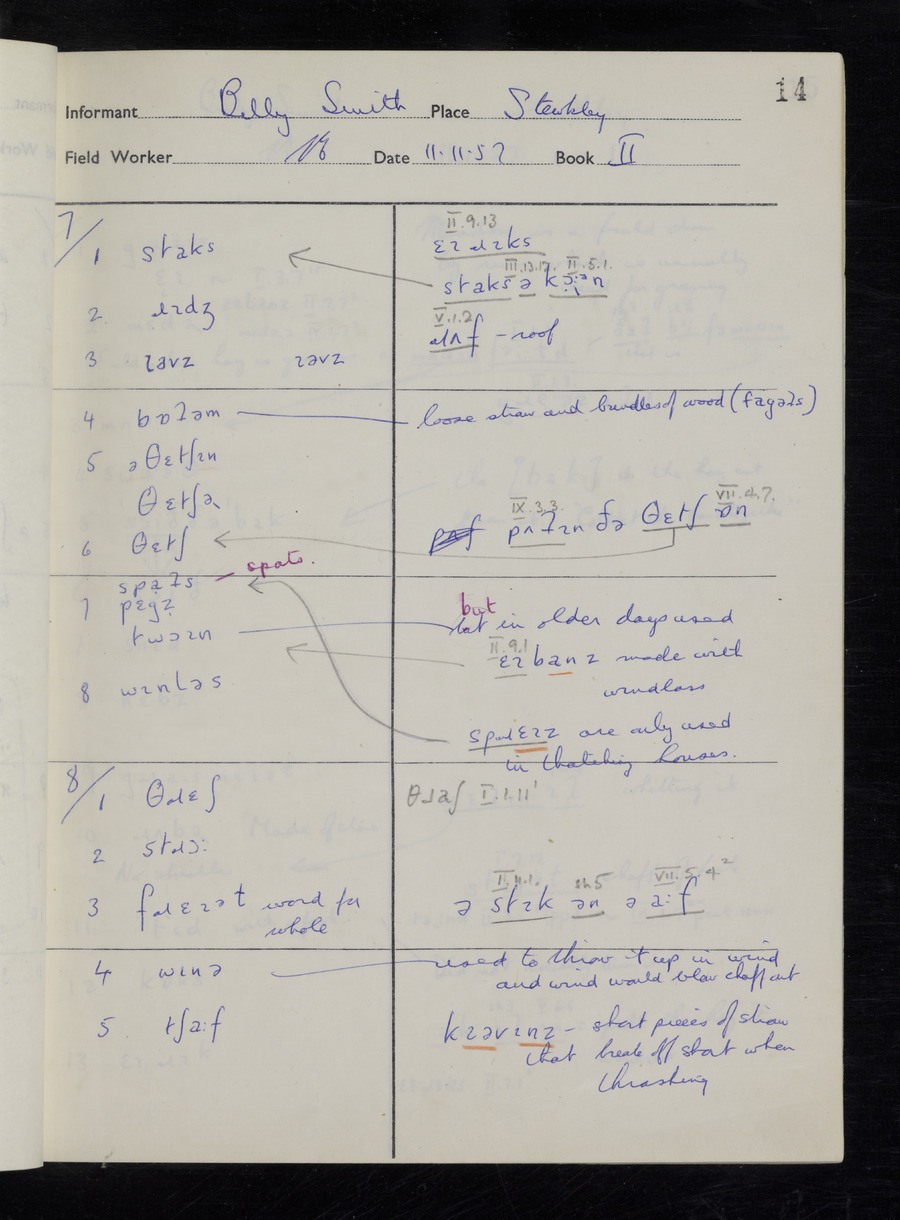 14
Informant Billy Smith Place Stewkley
Field Worker Date 11.11.57 Book II
7/1 staks
II.9.13
ɛɪ ɹɪks
III.13.17. II.5.1.
staksə kɔ̣:ᵊn
2 ɹɪdʒ
V.1.2
ɹʌf – roof
3 ɪəvz ɪəvz
4 bɒʔəm loose straw and bundles of wood (fagəʔs)
5 əθɛtʃɪn
θɛtʃə
IX.3.3. VII.4.7.
pʌʔɪn ðə θɛtʃ ɒn
6 θɛtʃ
spaʔs – spats.
7 pɛgz
twəɪn but in older days used
II.9.1
ɛɪbanz made with
windlass
8 wɪnləs
spɹɛɪz are only used
in thatching houses.
8/1 θɹɛʃ θɹaʃ I.1.11'
2 stɹɔ:
3 fɹɛɪət word for
whole
II.4.1. sh5 VII.5.4²
ə stɪk ən ə a:f
4 wɪnə used to throw it up in wind
and wind would blow chaff out
5 tʃa:f kɪəvɪnz – short pieces of straw
that break off short when
thrashing